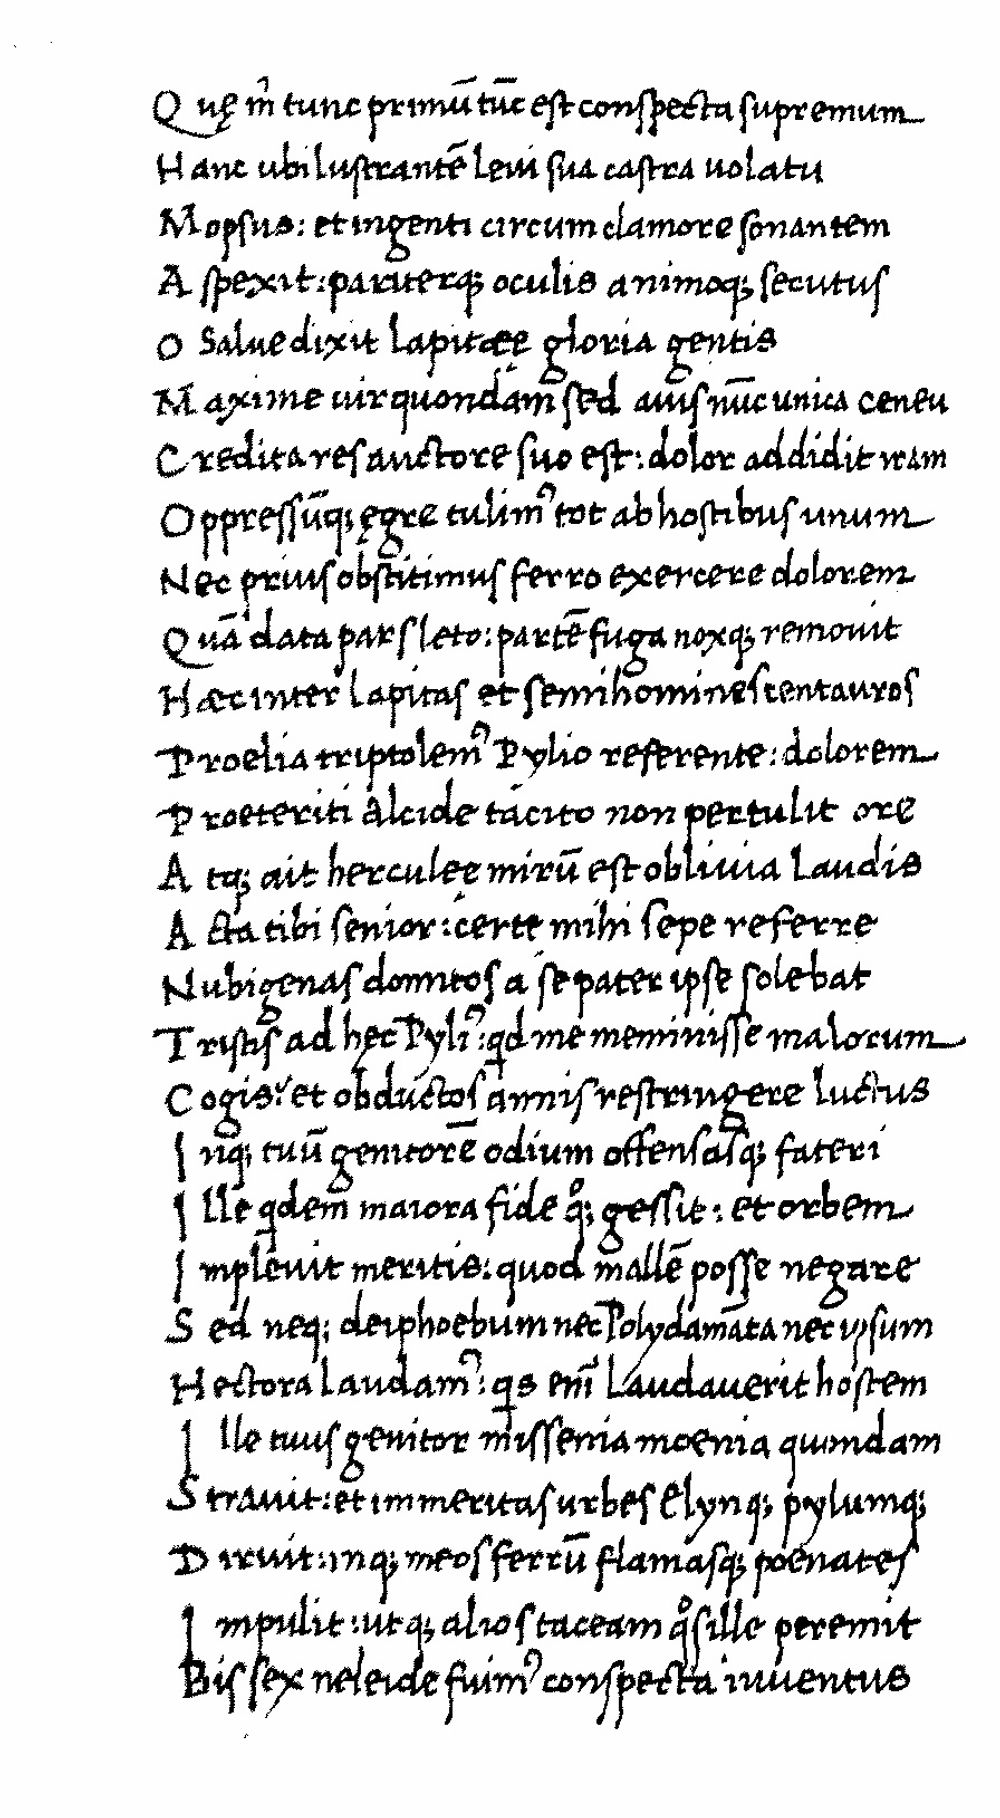 Quę m̃ tunc primū tūc est conspecta supremum
Hanc ubi lustrantē leui sua castra uolatu
Mopsus: et ingenti circum clamore sonantem
Aspexit: pariterq; oculis animoq; secutus
O Salue dixit lapitæę gloria gentis
Maxime uir quondam̄ sed auis nūc unica ceneu
Credita res auctore suo est: dolor addidit iram
Oppressūq; ęgre tulim⁹ tot ab hostibus unum
Nec prius obstitimus ferro exercere dolorem
Quā data pars leto: partē fuga noxq; remouit
Hæc inter lapitas et semihomines centauros
Proelia triptolem⁹ Pylio referente: dolorem
Proeteriti alcide tacito non pertulit ore
Atq; ait herculeę mirū est obliuia laudis
Acta tibi senior: certe mihi sepe referre
Nubigenas domitos a se pater ipse solebat
Tristis ad hęc Pyli⁹: qd me meminisse malorum
Cogis? et obductos annis restringere luctus
Inq; tuū genitorē odium offensasq; fateri
Ille qdem maiora fide qͦ; gessit: et orbem
Impleuit meritis: quod mallē posse negare
Sed neq; deiphoebum nec Polydamāta nec ipsum
Hectora laudam⁹: qs em̄ laudauerit hostem
Ille tuus genitor missenia moenia quondam
Strauit: et immeritas urbes Elynq; pylumq;
Diruit: inq; meos ferrū flamasq; poenates
Impulit: utq; alios taceam qͦs ille peremit
Bis sex neleide fuim⁹ conspecta iuuentus